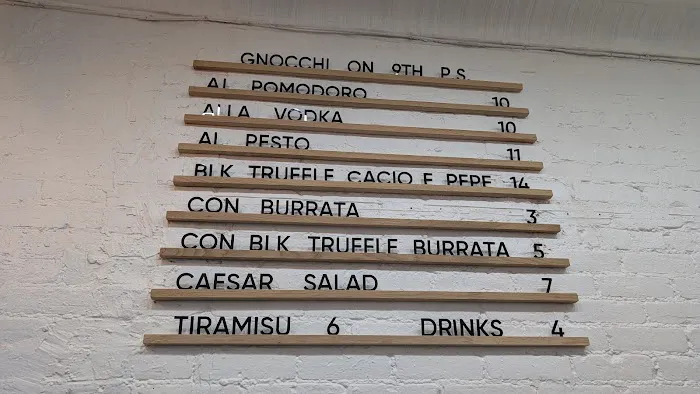 GNOCCHI ON 9TH P.S.
AL POMODORO 10
ALLA VODKA 10
AL PESTO 11
BLK TRUFFLE CACIO E PEPE 14
CON BURRATA 3
CON BLK TRUFFLE BURRATA 5
CAESAR SALAD 7
TIRAMISU 6 DRINKS 4